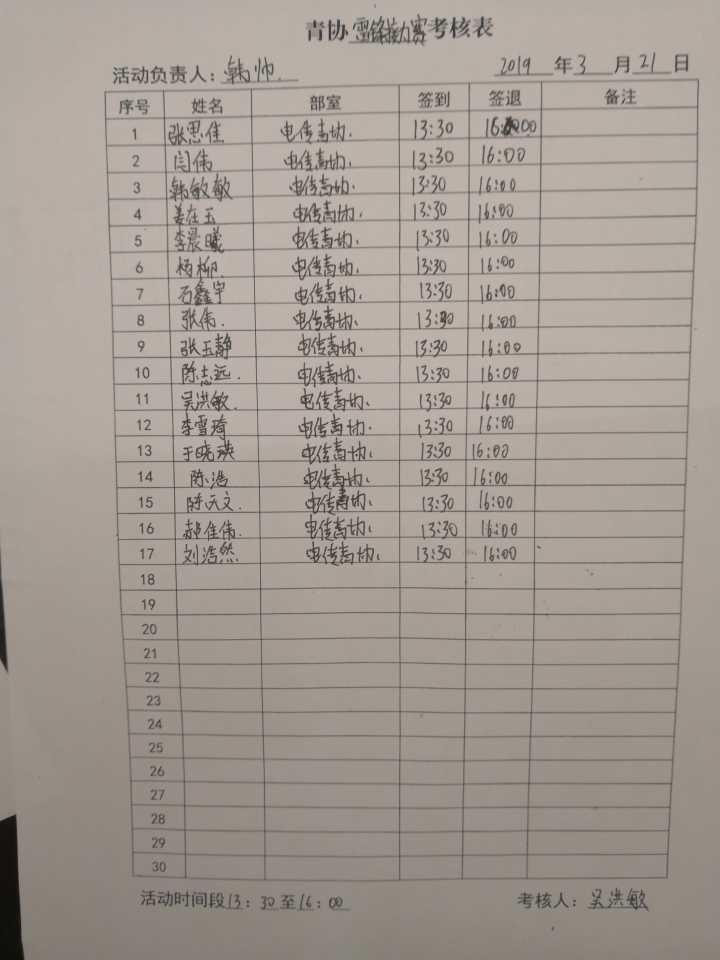 青协雷锋推动赛考核表
活动负责人：韩帅. 2019年3月21日
序号 姓名 部室 签到 签退 备注
1 张思佳 电传青协. 13:30 16:00
2 闫伟 电传青协. 13:30 16:00
3 韩敏敏 电传青协. 13:30 16:00
4 姜在玉 电传青协. 13:30 16:00
5 李晨曦 电传青协. 13:30 16:00
6 杨柳. 电传青协. 13:30 16:00
7 石鑫宇 电传青协. 13:30 16:00
8 张伟. 电传青协. 13:30 16:00
9 张玉静 电传青协. 13:30 16:00
10 陈志远. 电传青协. 13:30 16:00
11 吴洪敏. 电传青协. 13:30 16:00
12 李雪琦 电传青协. 13:30 16:00
13 于晓瑛 电传青协. 13:30 16:00
14 陈浩 电传青协. 13:30 16:00
15 陈天文. 电传青协. 13:30 16:00
16 郝佳伟. 电传青协. 13:30 16:00
17 刘浩然 电传青协. 13:30 16:00
18
19
20
21
22
23
24
25
26
27
28
29
30
活动时间段13：30至16：00 考核人：吴洪敏